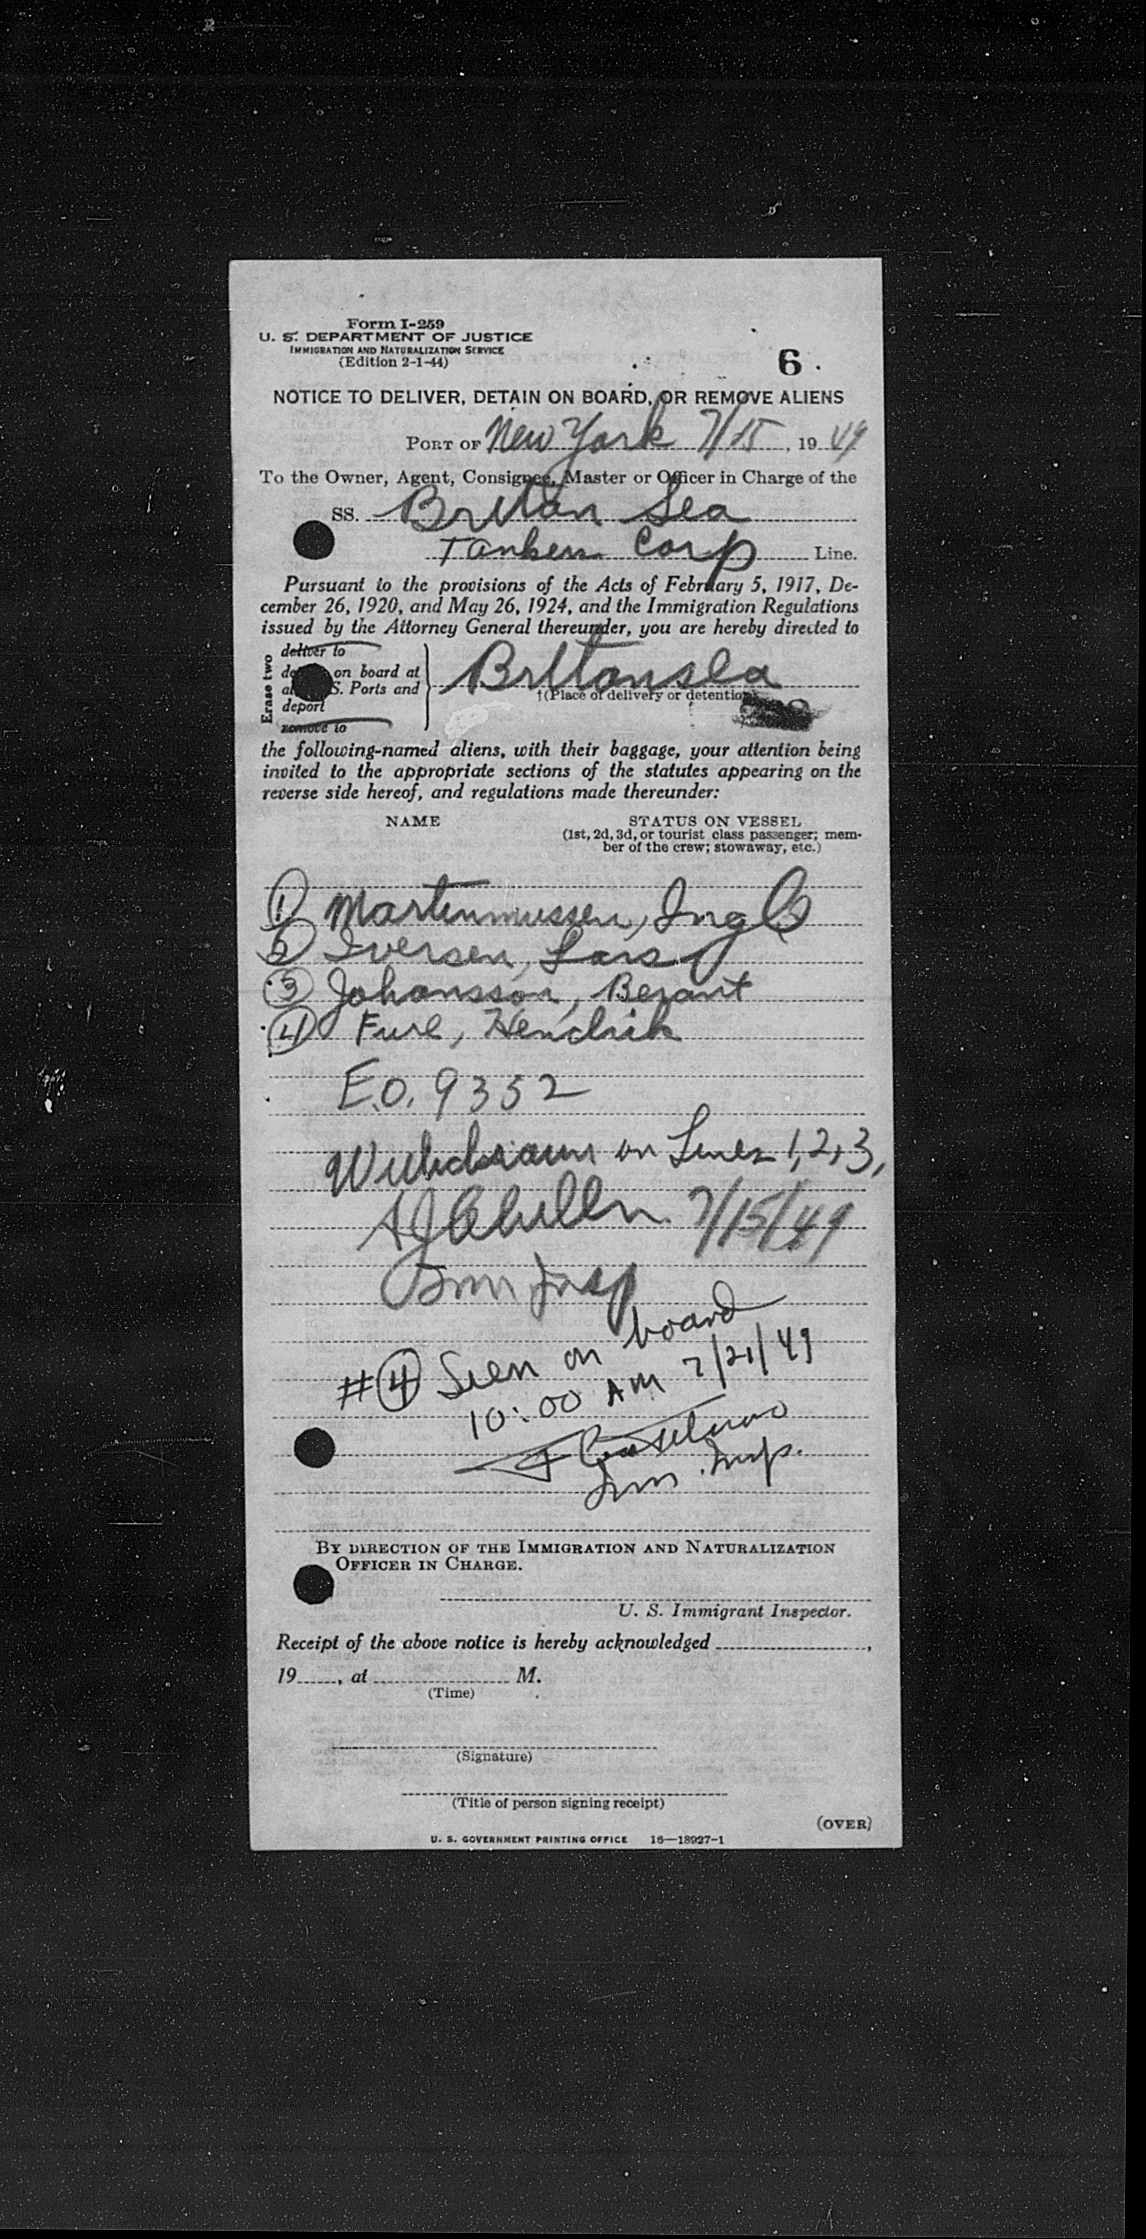 Form I-259
U. S. DEPARTMENT OF JUSTICE
IMMIGRATION AND NATURALIZATION SERVICE
(Edition 2-1-44)
6
NOTICE TO DELIVER, DETAIN ON BOARD, OR REMOVE ALIENS
PORT OF New York 7/15, 1949
To the Owner, Agent, Consignee, Master or Officer in Charge of the
SS. Brittan Sea
Tankers Corp Line.
Pursuant to the provisions of the Acts of February 5, 1917, De-
cember 26, 1920, and May 26, 1924, and the Immigration Regulations
issued by the Attorney General thereunder, you are hereby directed to
Erase two
deliver to
on board at
S. Ports and
deport
remove to
Brittansea
†(Place of delivery or detention)
the following-named aliens, with their baggage, your attention being
invited to the appropriate sections of the statutes appearing on the
reverse side hereof, and regulations made thereunder:
NAME STATUS ON VESSEL
(1st, 2d, 3d, or tourist class passenger; mem-
ber of the crew; stowaway, etc.)
1 Martinmussen, Ing
2 Iversen, Lars
3 Johansson, Berant
4 Fure, Hendrik
E.O. 9352
Withdrawn on Lines 1, 2, 3,
7/15/49
Imm Insp
#4 Seen on board
10:00 AM 7/21/49
Imm. Insp.
BY DIRECTION OF THE IMMIGRATION AND NATURALIZATION
OFFICER IN CHARGE.
U. S. Immigrant Inspector.
Receipt of the above notice is hereby acknowledged ,
19 , at M.
(Time)
(Signature)
(Title of person signing receipt)
(OVER)
U. S. GOVERNMENT PRINTING OFFICE 16—18927-1